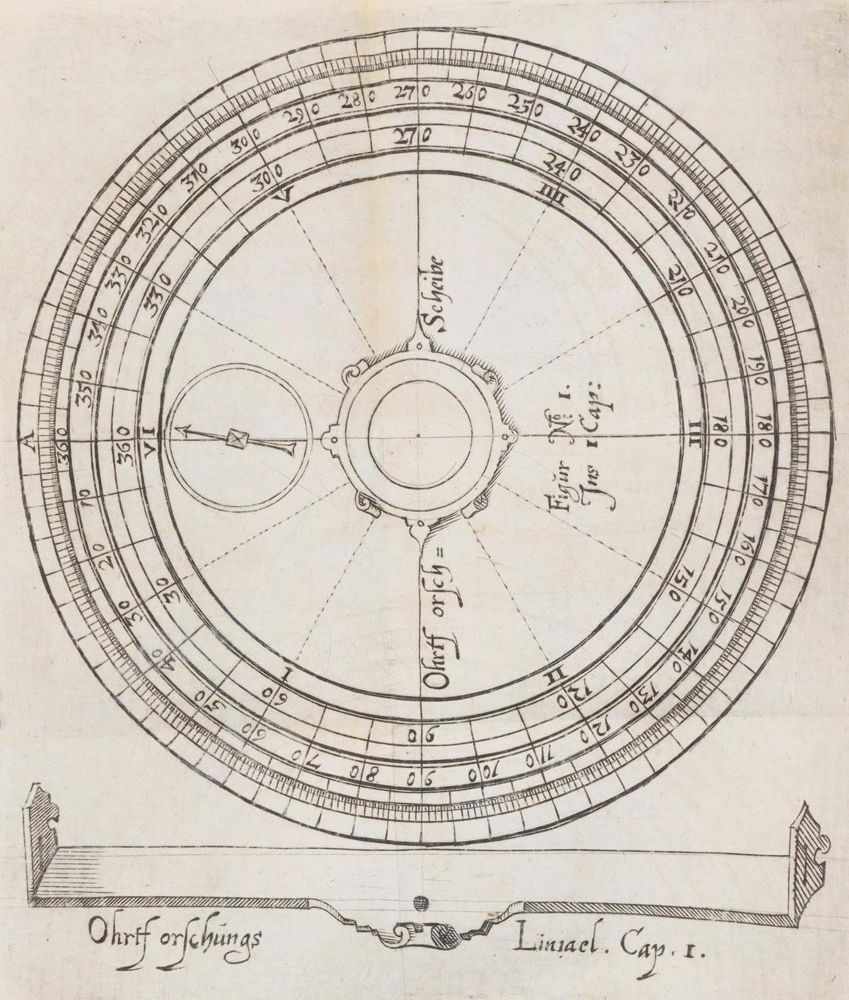 A
360
10
20
30
40
50
60
70
80
90
100
110
120
130
140
150
160
170
180
190
200
210
220
230
240
250
260
270
280
290
300
310
320
330
340
350
360
30
60
90
120
150
180
210
240
270
300
330
VI
I
II
III
IIII
V
Ohrtf orsch=
Scheibe
Figŭr No 1.
Ins 1 Cap:
Ohrtf orschŭngs
Liniael. Cap. 1.